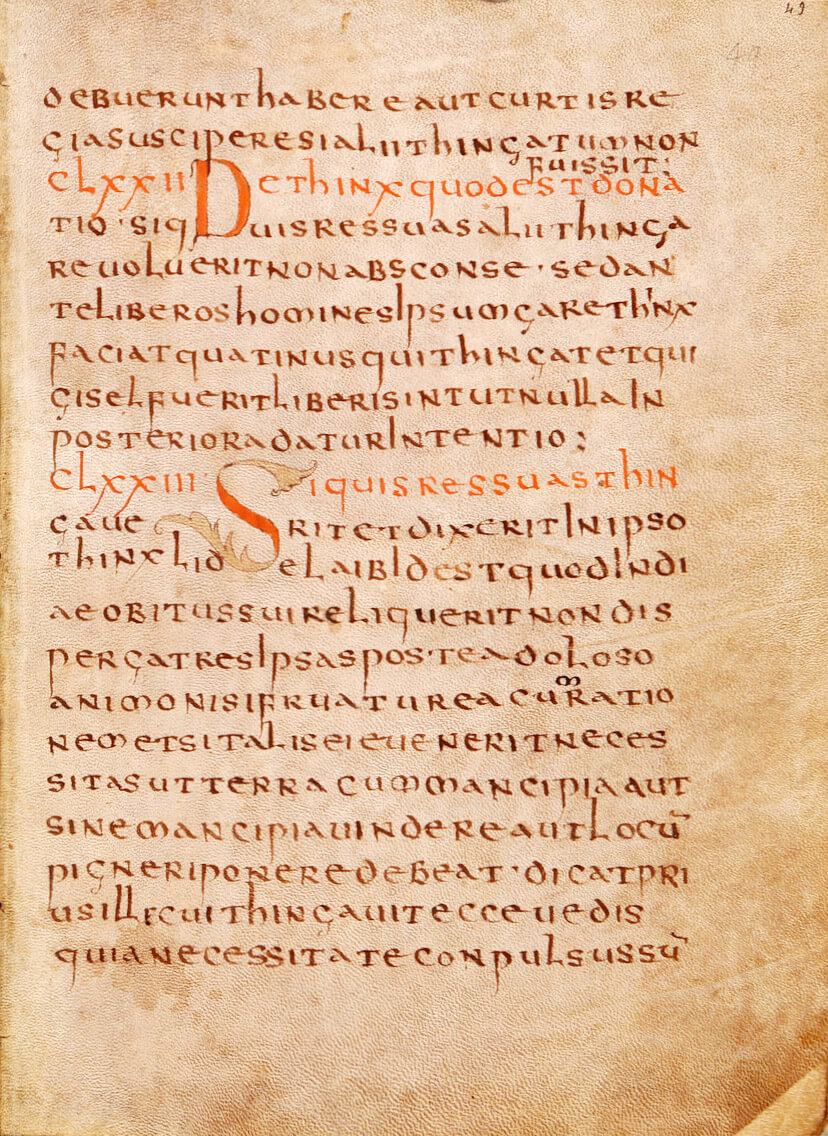 49
49
debuerunt habere aut curtis re
gia suscipere si alii thingatum non
fuissit;
CLXXII De thinx quod est dona
tio · Si quis res suas alii thinga
re uoluerit non absconse · sed an
te liberos homines ipsum garethinx
faciat quatinus qui thingat et qui
gisel fuerit liberi sint ut nulla in
posteriora datur intentio;
CLXXIII Si quis res suas thin
gaue rit et dixerit in ipso
thinx lid elaib id est quod in di
ae obitus sui reliquerit non dis
pergat res ipsas postea doloso
animo nisi fruatur ea cum ratio
nem et si talis ei euenerit neces
sitas ut terra cum mancipia aut
sine mancipia uindere aut locū
pigneri ponere debeat · dicat pri
us illi cui thingauit ecce uedis
quia necessitate conpulsus sū